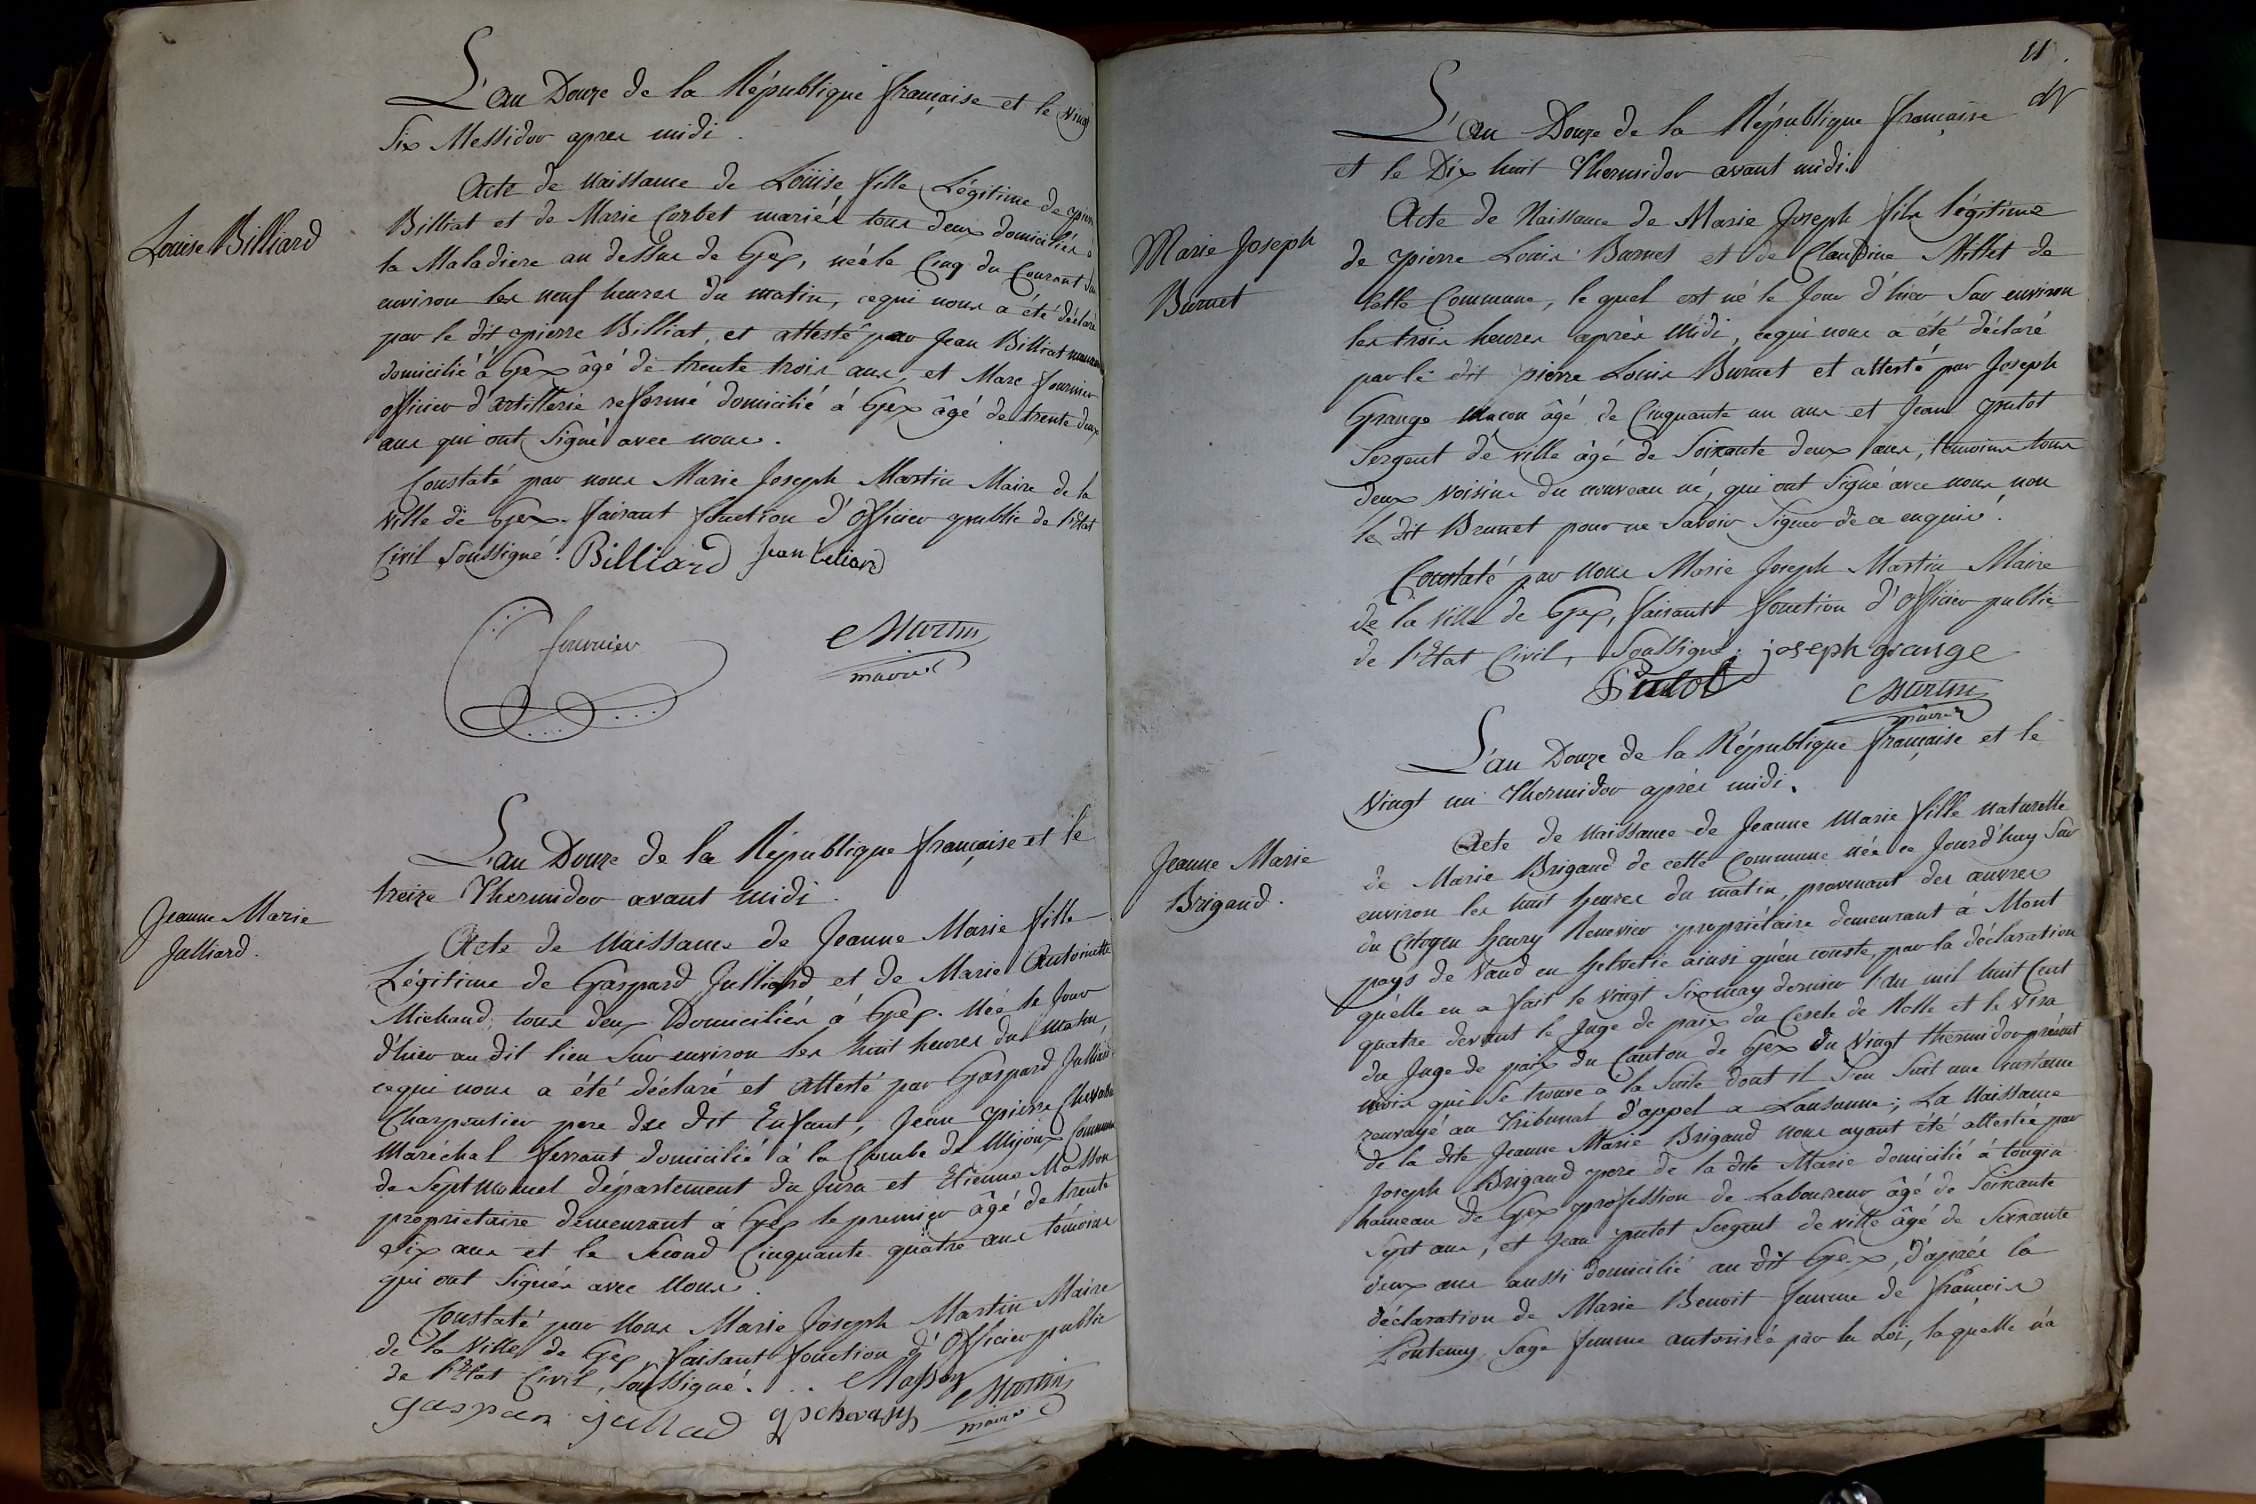 L'an Douze de la République française et le Vingt
Six Messidor après midi.
Louise Billiard
Acte de Naissance de Loüise fille Légitime de pierre
Billiat et de Marie Corbet mariés tous deux domiciliés à
la Maladiere au dessus de Gex, née le Cinq du Courant Sur
environ les neuf heures du matin, ce qui nous a été déclaré
par le dit pierre Billiat, et attesté par Jean Billiat
domicilié à Gex âgé de trente trois ans, et Marc fournier
officier d'artillerie reformé domicilié à Gex âgé de trente deux
ans qui ont Signé avec nous.
Constaté par nous Marie Joseph Martin Maire de la
ville de Gex. faisant fonction d'officier public de l'Etat
Civil Soussigné. Billiard Jean
fournier
Martin
maire
L'an Douze de la République française et le
treize Thermidor avant midi.
Jeanne Marie
Julliard.
Acte de Naissance de Jeanne Marie fille
Légitime de Gaspard Julliard et de Marie Antoinette
Michaud, tous deux Domiciliés à Gex. Née le Jour
d'hier au dit lieu Sur environ les huit heures du matin,
ce qui nous a été déclaré et attesté par Gaspard Julliard
Charpentier pere du dit Enfant, Jean pierre
Maréchal ferrant domicilié à la Combe de Mijoux Commune
de Septmoncel département du Jura et Etienne Masson
proprietaire demeurant à Gex le premier âgé de trente
Six ans et le Second Cinquante quatre ans témoins
qui ont Signés avec Nous.
Constaté par Nous Marie Joseph Martin Maire
de la Ville de Gex faisant fonction d'Officier public
de l'Etat Civil, Soussigné. Masson
Martin
maire
gaspar jullad
11.
L'an Douze de la République française
et le Dix huit Thermidor avant midi.
Marie Joseph
Burnet
Acte de Naissance de Marie Joseph fils légitime
de pierre Louis Burnet et de Claudine Millet de
Cette Commune, le quel est né le Jour d'hier Sur environ
les trois heures après Midi, ce qui nous a été déclaré
par le dit pierre Louis Burnet et attesté par Joseph
Grange Macon âgé de Cinquante un ans et Jean putot
Sergent de ville âgé de Soixante deux ans, témoins tous
deux voisins du nouveau né, qui ont Signé avec nous non
le dit Brunet pour ne Savoir Signer de ce enquis.
Constaté par Nous Marie Joseph Martin Maire
de la Ville de Gex, faisant fonction d'Officier public
de l'Etat Civil, Soussigné. joseph grange
Putot
Martin
maire
L'an Douze de la République française et le
Vingt un Thermidor après midi.
Jeanne Marie
Brigand.
Acte de Naissance de Jeanne Marie fille naturelle
de Marie Brigand de cette Commune née ce Jourd'huy Sur
environ les huit heures du matin, provenant des œuvres
du Citoyen henry Renevier propriétaire demeurant à Mont
pays de Vaud en helvetie ainsi qu'en conste, par la déclaration
qu'elle en a fait le vingt Six may dernier l'an mil huit Cent
quatre devant le Juge de paix du Cercle de Rolle et le Visa
du Juge de paix du Canton de Gex du Vingt thermidor présent
mois qui Se trouve a la Suite dont il S'en Suit une instance
renvoyé au Tribunal d'appel a Lausanne; La Naissance
de la dite Jeanne Marie Brigand Nous ayant été attestée par
Joseph Brigand pere de la dite Marie domicilié à tougin
hameau de Gex profession de Laboureur âgé de Soixante
Sept ans, et Jean putot Sergent de ville âgé de Soixante
deux ans aussi domicilié au dit Gex, d'après la
déclaration de Marie Benoit femme de françois
Sage femme autorisée par la Loi, laquelle n'a